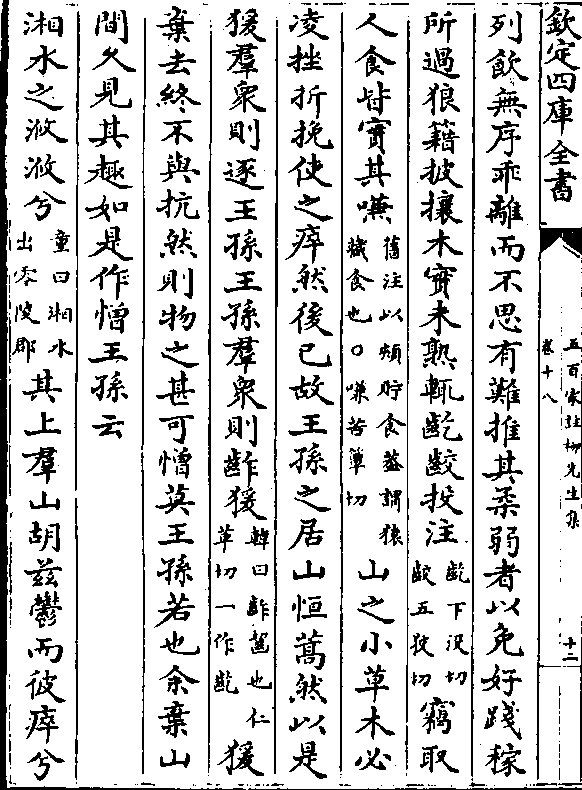 欽定四庫全書
五百家註柳先生集
卷十八
十二
列飲無序乖離而不思有難推其柔弱者以免好踐稼
所過狼籍披攘木實未熟輒齕齩投注齕下沒切齩五狡切竊取
人食皆實其嗛舊注以頰貯食蓋謂猿藏食也〇嗛苦簟切山之小草木必
凌挫折挽使之瘁然後已故王孫之居山恒蒿然以是
猨羣衆則逐王孫王孫羣衆則齚猨韓曰齚齧也仁革切一作齕猨
棄去終不與抗然則物之甚可憎莫王孫若也余棄山
間久見其趣如是作憎王孫云
湘水之浟浟兮童曰湘水出零陵郡其上羣山胡茲鬱而彼瘁兮